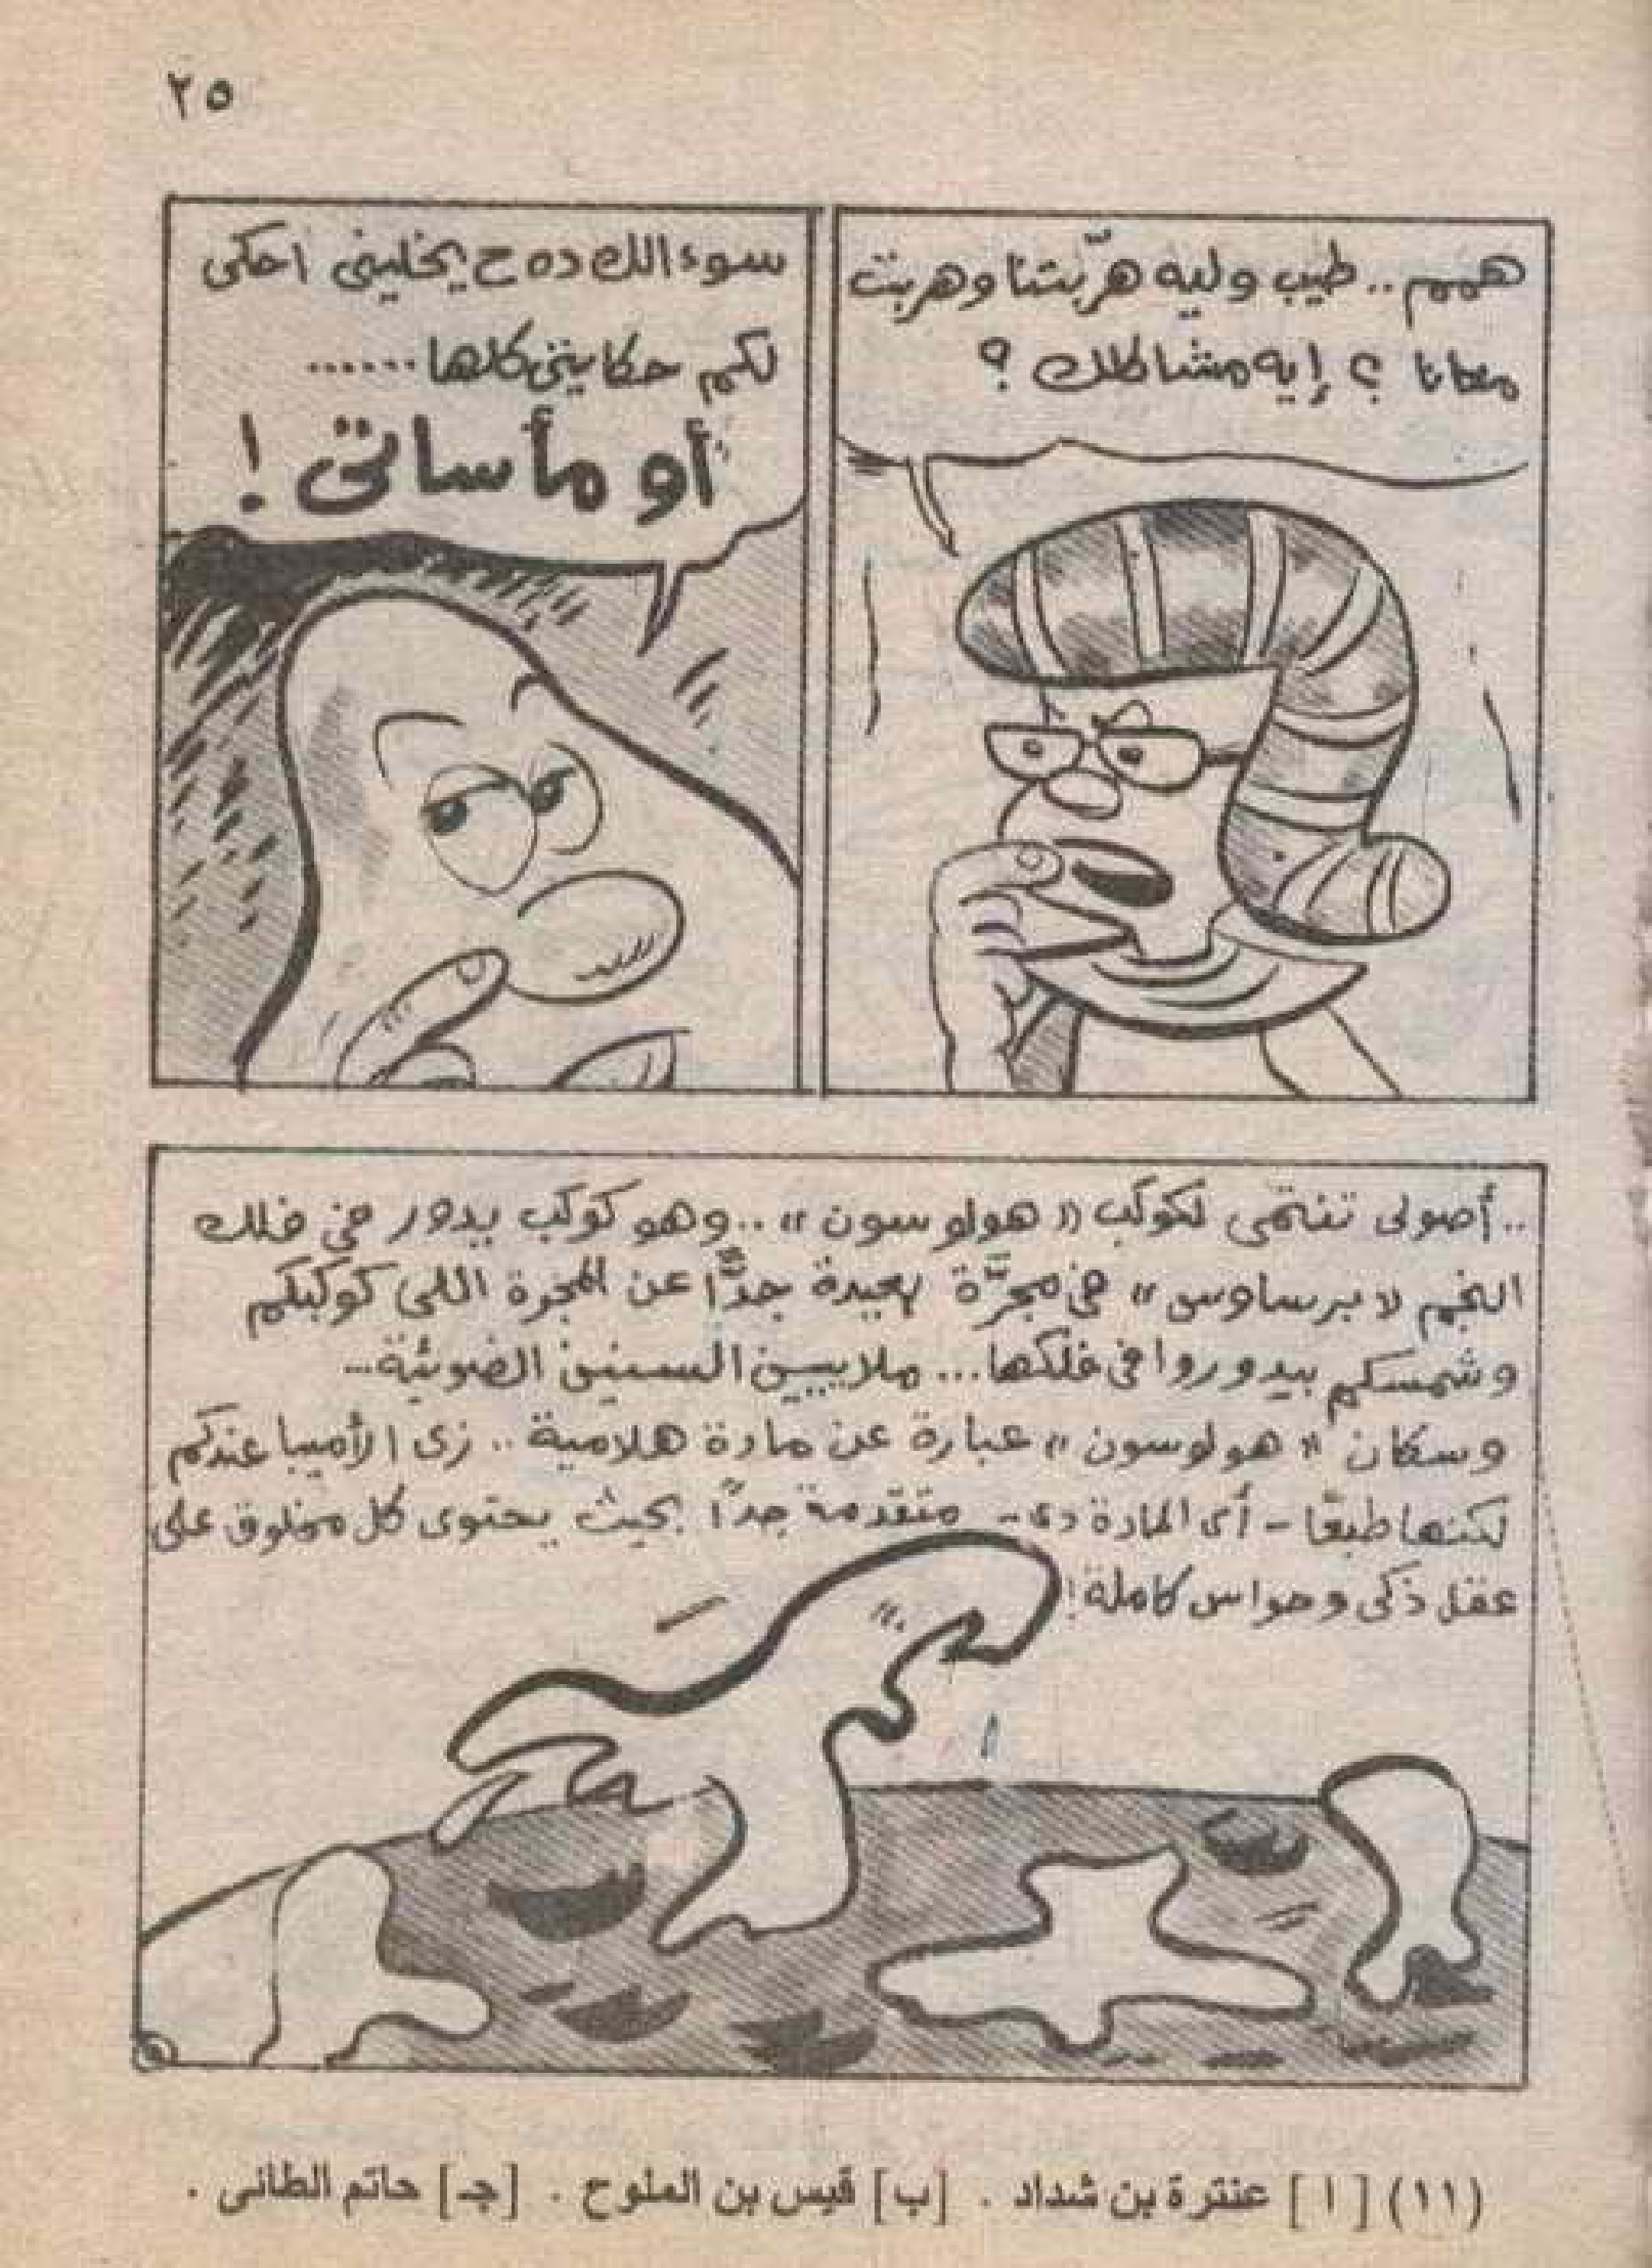 ٢٥
هممم .. طيب وليه هرّبتنا وهربت
معانا ؟ إيه مشاكلك ؟
سوءالك ده ح يخليني احكى
لكم حكايتي كلها ......
أو مأساتى !
.. أصولى تنتمى لكوكب « هولوسون » .. وهو كوكب بيدور فى فلك
النجم « برساوس » فى مجرَّة بعيدة جدًّا عن المجرة اللى كوكبكم
وشمسكم بيدوروا فى فلكها ... ملايين السنين الضوئية ...
وسكان « هولوسون » عبارة عن مادة هلامية .. زى الأميبا عندكم
لكنها طبعًا - أى المادة دى - متقدمة جدًّا بحيث يحتوى كل مخلوق على
عقل ذكى وحواس كاملة !
(١١) [ ا ] عنترة بن شداد . [ب] قيس بن الملوح . [جـ] حاتم الطائى .